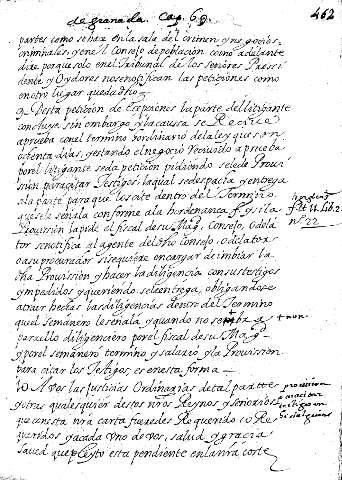 de granada. Cap. 69.
462
partes como se hara en la sala del crimen y negocios
criminales, y en el Consejo de poblacion como adelante
dire porque solo en el Tribunal de los señores Presi
dente y Oydores no se notifican las peticiones como
en otro lugar queda dho
9 Desta peticion de excepciones la parte del litigante
concluye sin embargo y la caussa se Recive
a prueba con el termino hordinario de la ley que son
ochenta dias, y estando el negocio recivido a prueba
por el litigante se da peticion pidiendo se le de Provi
sion para citar Testigos la qual se despacha y entrega
a la parte para que los cite dentro del Termino
que se le señala conforme a la hordenanza
Provission la pide el fiscal de su Magd. Consejo, o dela
tor se notifica al agente del dho Consejo o delator
o a su procurador si se quiere encargar de imbiar la
dha Provission y hacer la diligencia con sus testigos
y queriendo se le entrega, obligandose
a traer hechas las diligencias dentro del Termino
que el semanero le señala y quando no se
para ello diligenciero por el fiscal de su Magd
y por el semanero termino y salario y la Provission
para citar los Testigos, es en esta forma
10 A vos las Justicias Ordinarias de tal parte
y otras qualesquier destos nros Reynos y señorios
que con esta nra carta fueredes Requerido o Re
queridos y a cada uno de vos, salud y gracia
saved que Pleyto esta pendiente en la nra corte
lib. 2.
22
+ non
provission